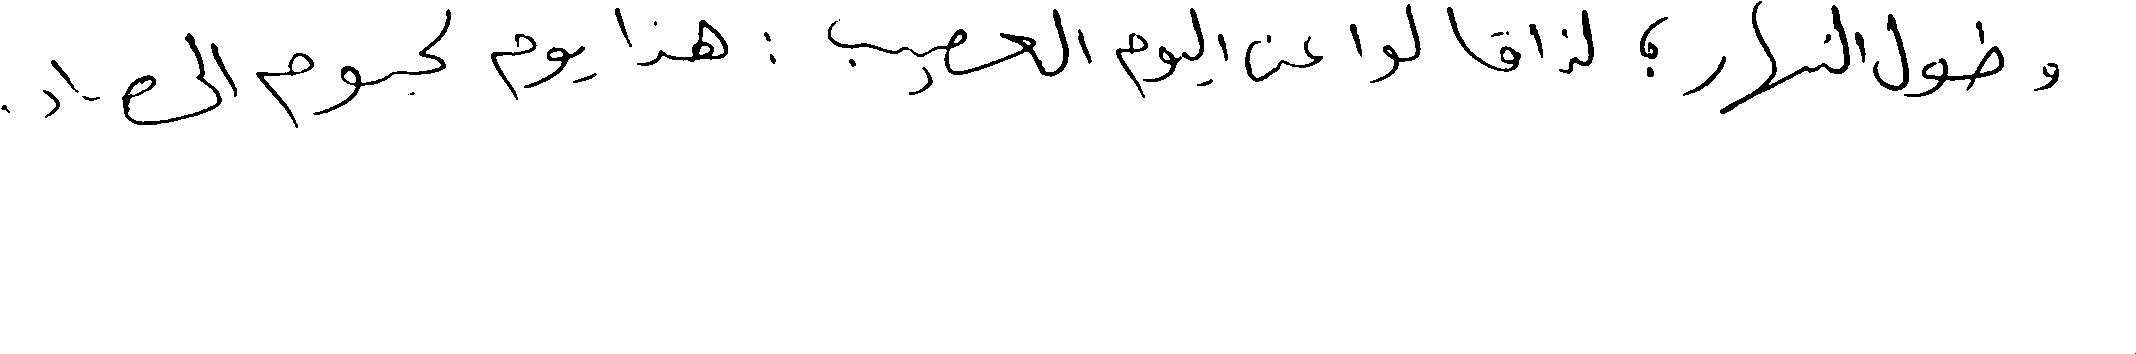 وطول النهار؛ لذا قالوا عن اليوم العصيب : هذا يوم كيوم الحصاد.